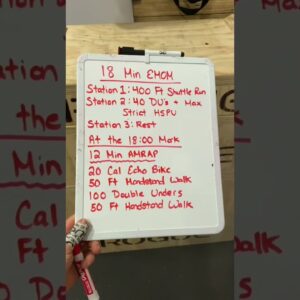 18 Min EMOM
Station 1: 400 Ft Shuttle Run
Station 2: 40 DU's + Max
Strict HSPU
Station 3: Rest
At the 18:00 Mark
12 Min AMRAP
20 Cal Echo Bike
50 Ft Handstand Walk
100 Double Unders
50 Ft Handstand Walk